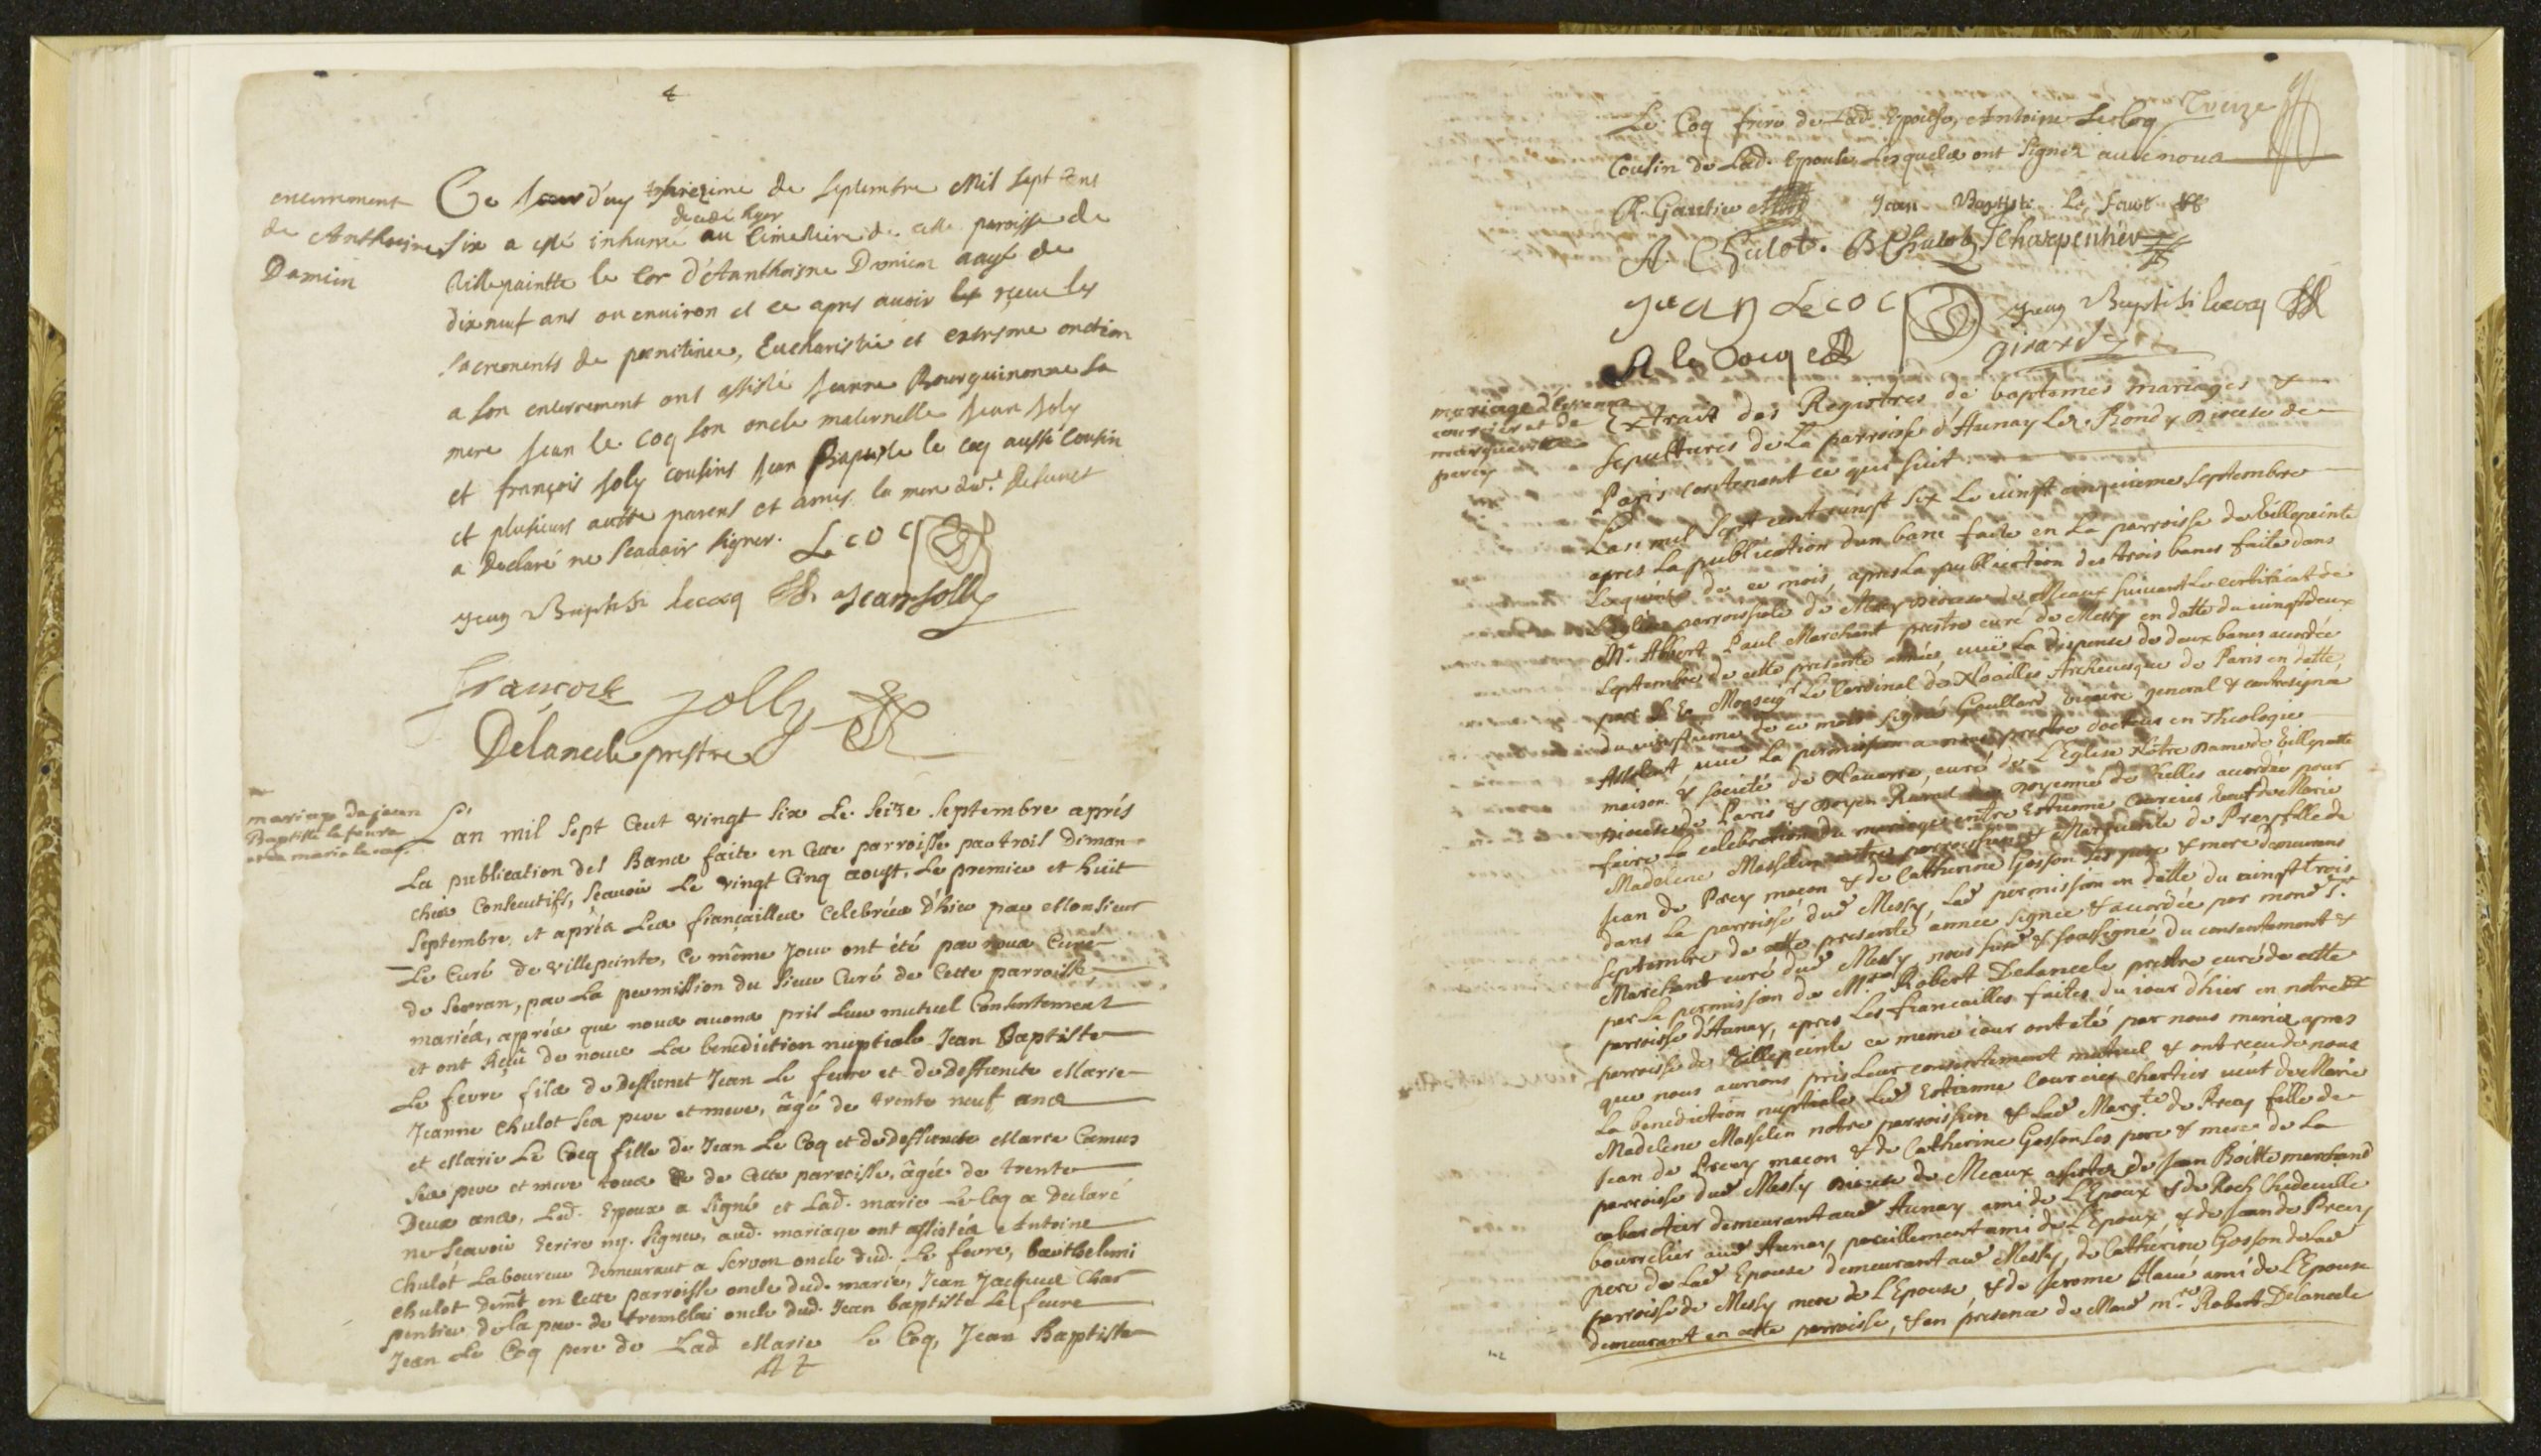 4
enterrement
de Anthoisne
Damien
Ce jourd'uy de septembre Mil sept cens
decedé hyer
six a esté inhumé au Cimetiere de cette paroisse de
Villepaintte le Cor d'Anthoisne Damien aagé de
dix neuf ans ou environ et ce apres avoir receu les
sacrements de poenitence, Eucharistie et extresme onction
a son enterrement ont assisté Jeanne Bourguinonne sa
mere Jean le coq son oncle maternelle Jean Joly
et françois Joly cousins Jean Baptiste le coq aussi Cousin
et plusieurs autte parens et amys la mere dud. Defunct
a declaré ne scavoir signer. Lecoc
Jean Baptiste lecocq Jean Jolly
francois Jolly
Delancele prestre
mariage de jean
Baptiste le feuvre
et de marie le coq.
L'an mil sept cent vingt six Le seize septembre aprés
La publication des Bancs faite en Cette parroisse par trois diman-
ches Consecutifs, sçavoir Le vingt Cinq aoust, Le premier et huit
septembre, et aprés Les fiançailles Celebrées D'hier par Monsieur
Le Curé de villepeinte, Ce même Jour ont été par nous Curé
de sevran, par La permission du sieur Curé de Cette parroisse
mariés, apprés que nous avons pris Leur mutuel Consentement
et ont Reçû de nous La benediction nuptiale Jean Baptiste
Le fevre fils de Deffunct Jean Le fevre et de Deffuncte Marie
Jeanne Chulot ses pere et mere, âgé de trente neuf ans
et Marie Le Cocq fille de Jean Le Coq et de deffuncte Marie Camus
ses pere et mere tous de Cette parroisse, âgée de trente
Deux ans, Led. Epoux a signé et Lad. marie Le Coq a Declaré
ne sçavoir Ecrire ny signer, aud. mariage ont assistés Antoine
Chulot Laboureur Demeurant a servon oncle dud. Le fevre, barthelemi
Chulot demt en Cette parroisse oncle dud. marie, Jean Jacques Char
pentier de la par. de tremblai oncle dud. Jean baptiste Le fevre
Jean Le Coq pere de Lad Marie Le Coq, Jean Baptiste
Le Coq frere de Lad. Epouse, Antoine Le Coq
Cousin de Lad. Epouse, Lesquels ont signez avec nous
R. Gautier Jean Baptiste Le feuvre
A. Chulot. B Chulot J Charpentier
jean Lecoc Jean Baptiste lecocq
A le Cocq girard
mariage d'estienne
courcier et de
marguerite
precy
Extrait des Registres de baptemes mariages &
sepultures de La parroisse d'Aunay Lez Bondy Diocese de
Paris contenant ce qui suit.
L'an mil sept cent vingt six Le vingt cinquieme septembre
apres La publication d'un banc faite en La parroisse de Villepeinte
Le quinze de ce mois, apres La publication des trois bancs faite dans
L'Eglise parroissiale de Messy Diocese de Meaux suivant Le certificat de
Mr. Albert Paul Marchant prestre curé de Messy en datte du vingt deux
septembre de cette presente année vuë La dispense de deux bancs accordée
par S. E. Monseigr Le Cardinal de Noailles Archevesque de Paris en datte
du de ce mois signé Goullard vicaire general & contresigné
vuë La permission a nous prestre docteur en Theologie
maison & societé de Navarre, curé de L'Eglise Nôtre Dame de Villepinte
Diocese de Paris & Doyen Rural Doyenné de Chelles accordée pour
faire La celebration du mariage entre Estienne Courcier veuf de Marie
Madelene Masselin notre parroissien & Marguerite de Precy fille de
Jean de Precy maçon & de Catherine Gosson ses pere & mere demeurans
dans La parroisse dud Messy, Lad permission en datte du vingt trois
septembre de cette presente année signée & accordée par mond Sr.
Marchant curé dud Messy, nous susd & soussigné du consentement &
par La permission de Mre Robert Delancele prestre curé de cette
parroisse d'Aunay, apres Les fiancailles faites du jour d'hier en notred
parroisse de Villepeinte ce meme jour ont été par nous mariés apres
que nous aurions pris Leur consentement mutuel & ont receu de nous
La benediction nuptiale Led Estienne Courcier chartier veuf de Marie
Madelene Masselin notre parroissien & Lad Margte de Precy fille de
Jean de Precy maçon & de Catherine Gosson ses pere & mere de La
parroisse dud Messy Diocese de Meaux assistez de Jean Boitte marchand
cabaretier demeurant aud Aunay ami de L'Epoux & de Roch Chedeville
bourrelier aud Aunay pareillement ami de L'Epoux & de Jean de Precy
pere de Lad Epouse demeurant aud Messy, de Catherine Gosson de Lad
parroisse de Messy mere de L'Epouse, & de Jerome Havé ami de L'Epouse
demeurant en cette parroisse, & en presence de Mond mre. Robert Delancele